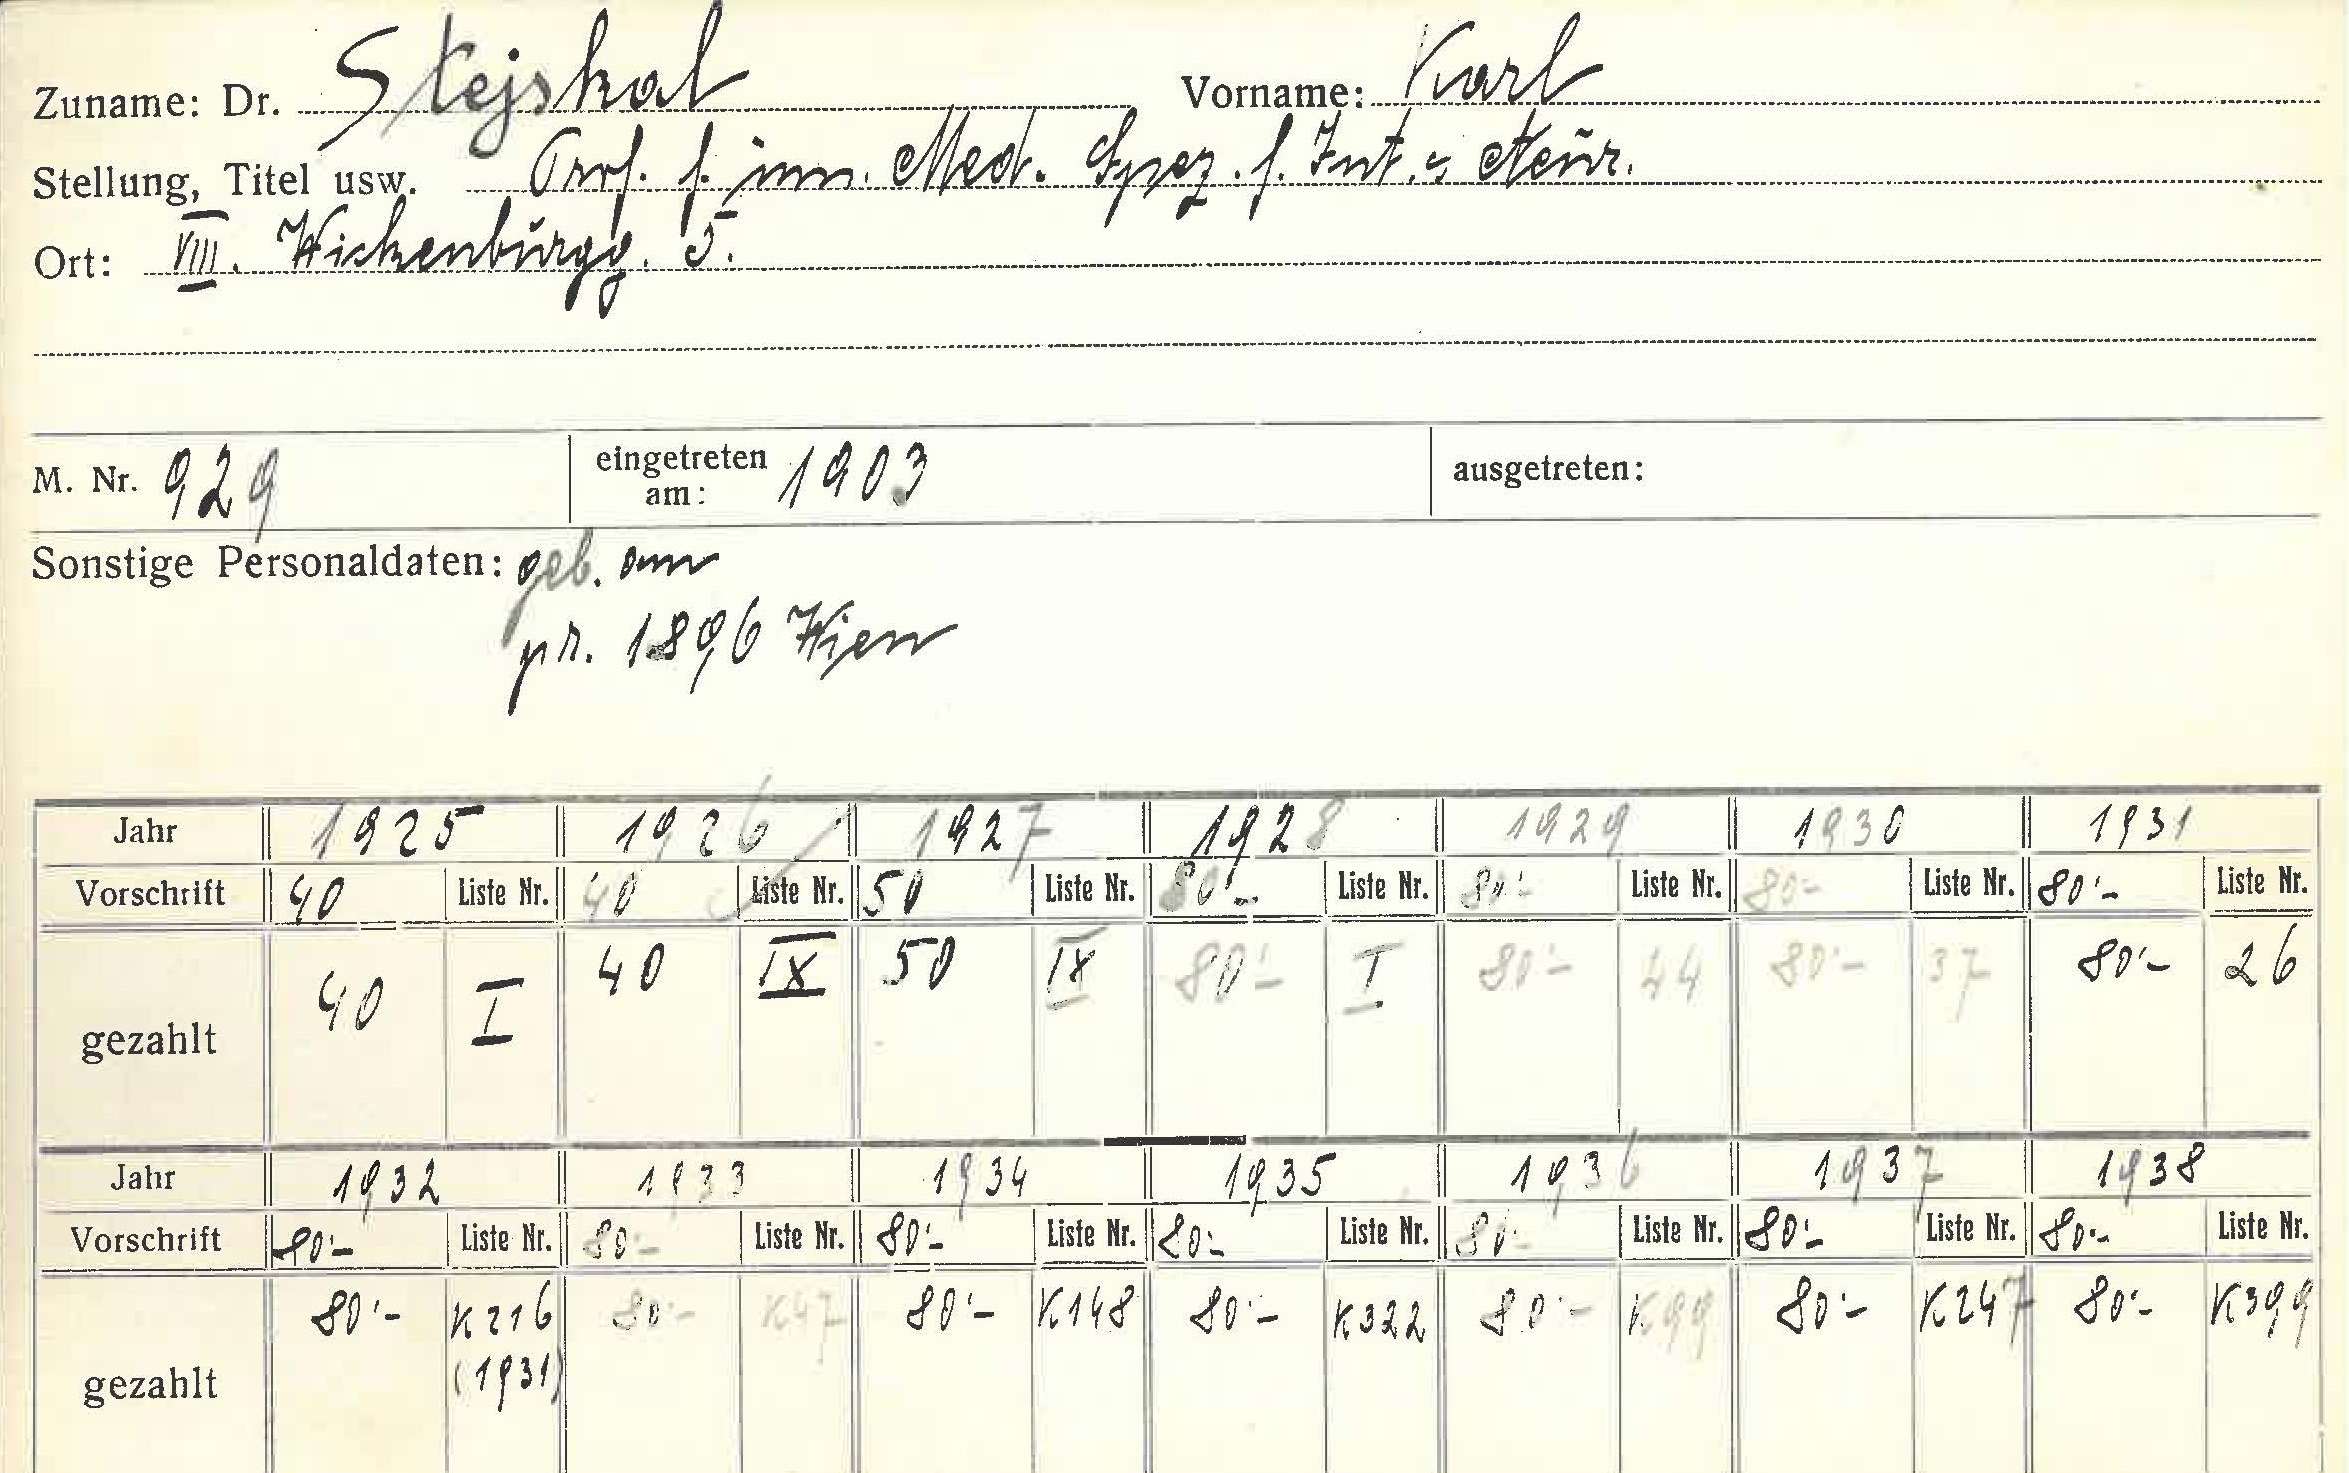 Zuname: Dr. Stejskal Vorname: Karl
Stellung, Titel usw. Prof. f. inn. Med. Spez. f. Int. u. Neur.
Ort: VIII. Wickenburgg. 5.
M. Nr. 929 eingetreten am: 1903 ausgetreten:
Sonstige Personaldaten: geb. am
pr. 1896 Wien
Jahr 1925 1926 1927 1928 1929 1930 1931
Vorschrift 40 Liste Nr. 40 Liste Nr. 50 Liste Nr. 80'- Liste Nr. 80'- Liste Nr. 80'- Liste Nr. 80'- Liste Nr.
gezahlt 40 I 40 IX 50 IX 80'- I 80'- 44 80'- 37 80'- 26
Jahr 1932 1933 1934 1935 1936 1937 1938
Vorschrift 80'- Liste Nr. 80'- Liste Nr. 80'- Liste Nr. 80'- Liste Nr. 80'- Liste Nr. 80'- Liste Nr. 80'- Liste Nr.
gezahlt 80'- K216 80'- K47 80'- K148 80'- K322 80'- K99 80'- K247 80'- K399
(1931)